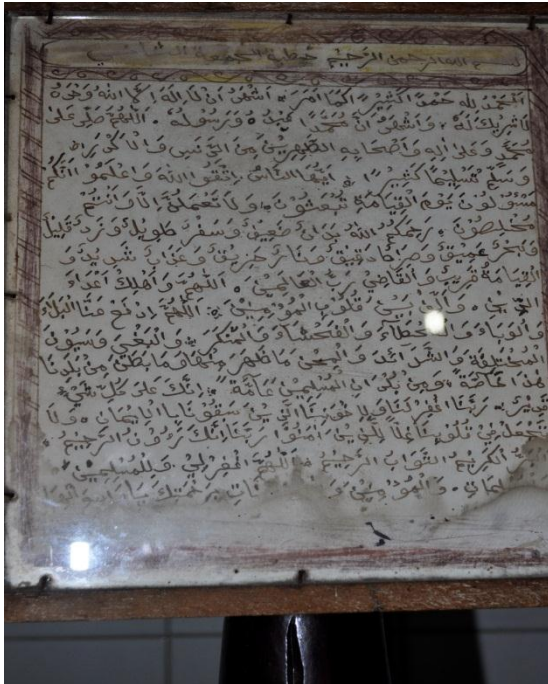 بسم الله الرحمن الرحيم خطبة الجمعة
الحمد لله حمدا كثيرا كما امر اشهد ان لا اله الا الله وحده
لا شريك له واشهد ان محمدا عبده ورسوله اللهم صلى على
محمد وعلى اله واصحابه الطهرين من الدنس
وسلم تسليما كثيرا ايها الناس اتقوا الله واعلموا انكم
مسؤلون يوم القيامة تبعثون ولا تعملن الا وانتم
مخلصون رحمكم الله بدن ضعيف وسفر طويل وزد قليل
وبحر عميق وصرط دقيق ونار حريق وعذاب شديد و
القيامة قريب والقاضى رب العالمين اللهم واهلك اعداء
الدين والف بين قلوب المؤمنين اللهم ادفع عنا البلاء
والوباء والفحشاء والمنكر والبغى وسيوف
المختلفة والشدائد والمحن ما ظهر منها وما بطن من بلدنا
هذا خاصة ومن بلدان المسلمين عامة انك على كل شيء
قدير ربنا اغفر لنا ولاخواننا الذين سبقونا بالايمان ولا
تجعل فى قلوبنا غلا للذين امنوا ربنا انك رؤوف الرحيم
الكريم التواب الرحيم اللهم اغفر لى وللمسلمين
والمؤمنين برحمتك يا